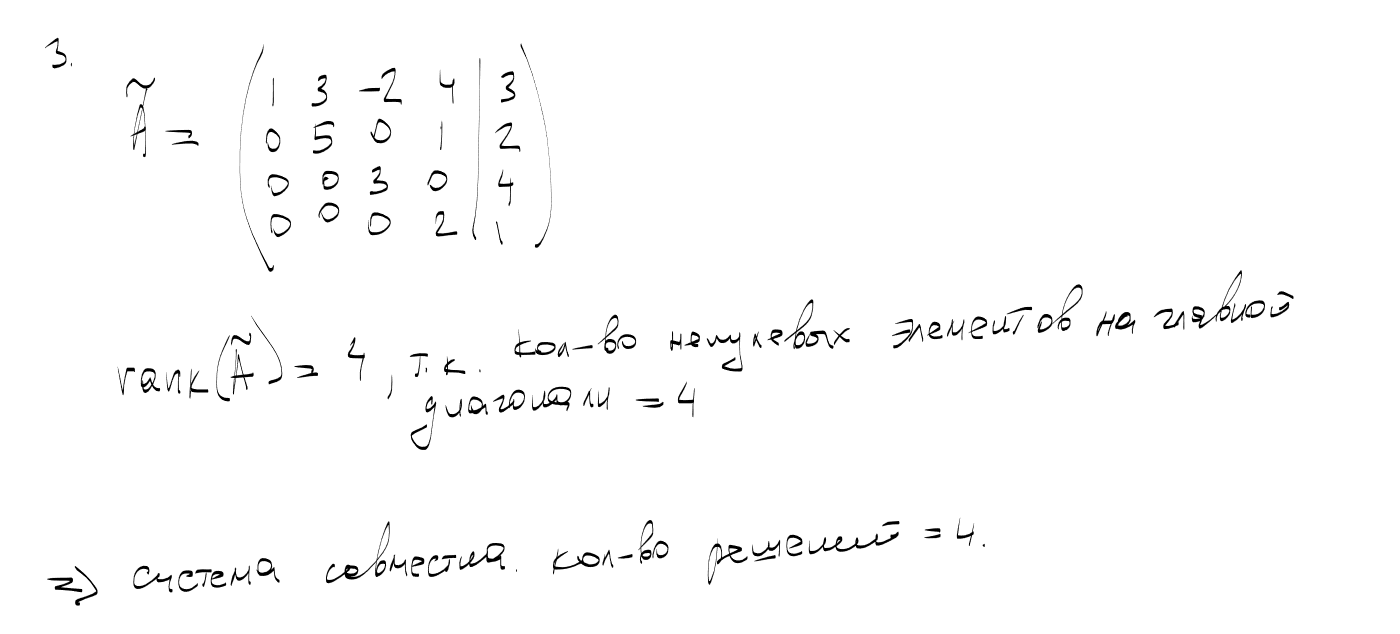 3.
Ã = ( 1 3 -2 4 | 3
0 5 0 1 | 2
0 0 3 0 | 4
0 0 0 2 | 1 )
rank(Ã) = 4, т.к. кол-во ненулевых элементов на главной
диагонали = 4
=> система совместна. кол-во решений = 4.